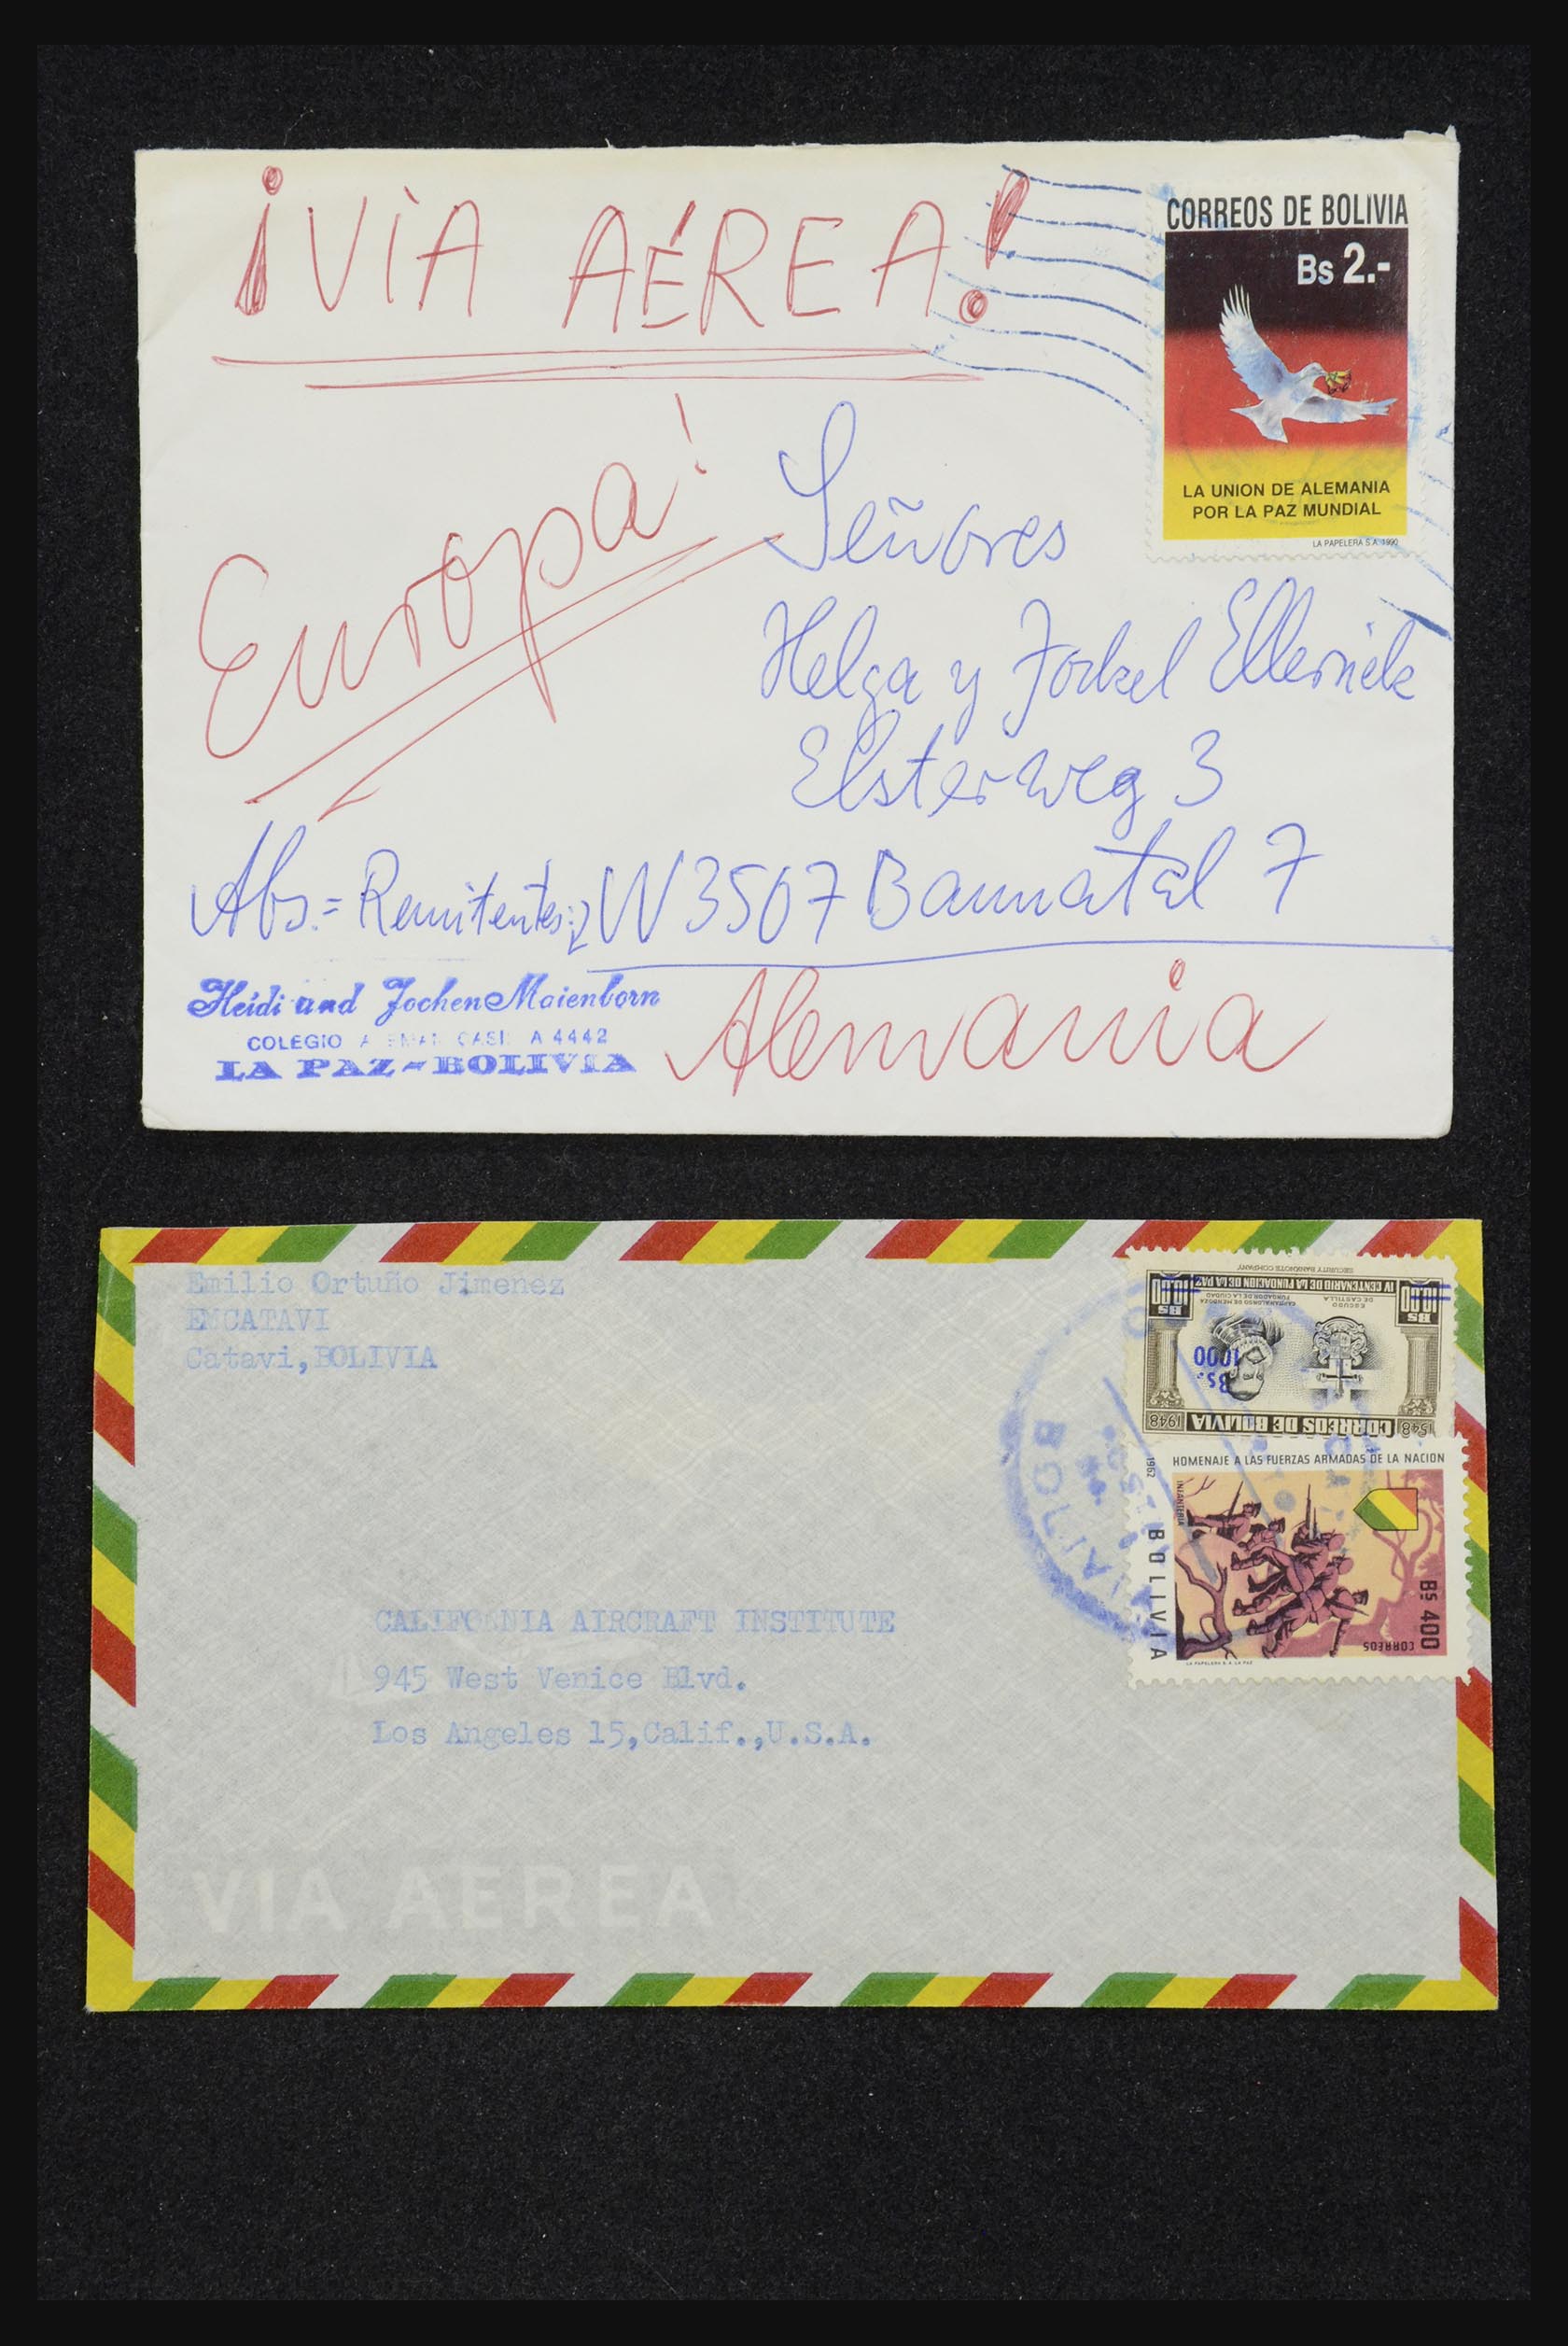 ¡VÍA AÉREA!
CORREOS DE BOLIVIA
Bs 2.-
LA UNION DE ALEMANIA
POR LA PAZ MUNDIAL
LA PAPELERA S.A. 1990
Europa!
Señores
Helga y Jockel
Elsterweg 3
Abs. = Remitentes:
W 3507 Baunatal 7
Alemania
Heidi und Jochen Maienborn
COLEGIO A 4442
LA PAZ-BOLIVIA
Emilio Ortuño Jimenez
EMCATAVI
Catavi,BOLIVIA
CORREOS DE BOLIVIA
1548
1948
Bs.
1000
ESCUDO
DE CASTILLA
CAPITAN ALONSO DE MENDOZA
FUNDADOR DE LA CIUDAD
BS
10.00
BS
10.00
IV CENTENARIO DE LA FUNDACION DE LA PAZ
SECURITY BANKNOTE COMPANY
HOMENAJE A LAS FUERZAS ARMADAS DE LA NACION
1962
INFANTERIA
BOLIVIA
Bs 400
CORREOS
LA PAPELERA S.A. LA PAZ
BOLIVIA
CALIFORNIA AIRCRAFT INSTITUTE
945 West Venice Blvd.
Los Angeles 15,Calif.,U.S.A.
VIA AEREA